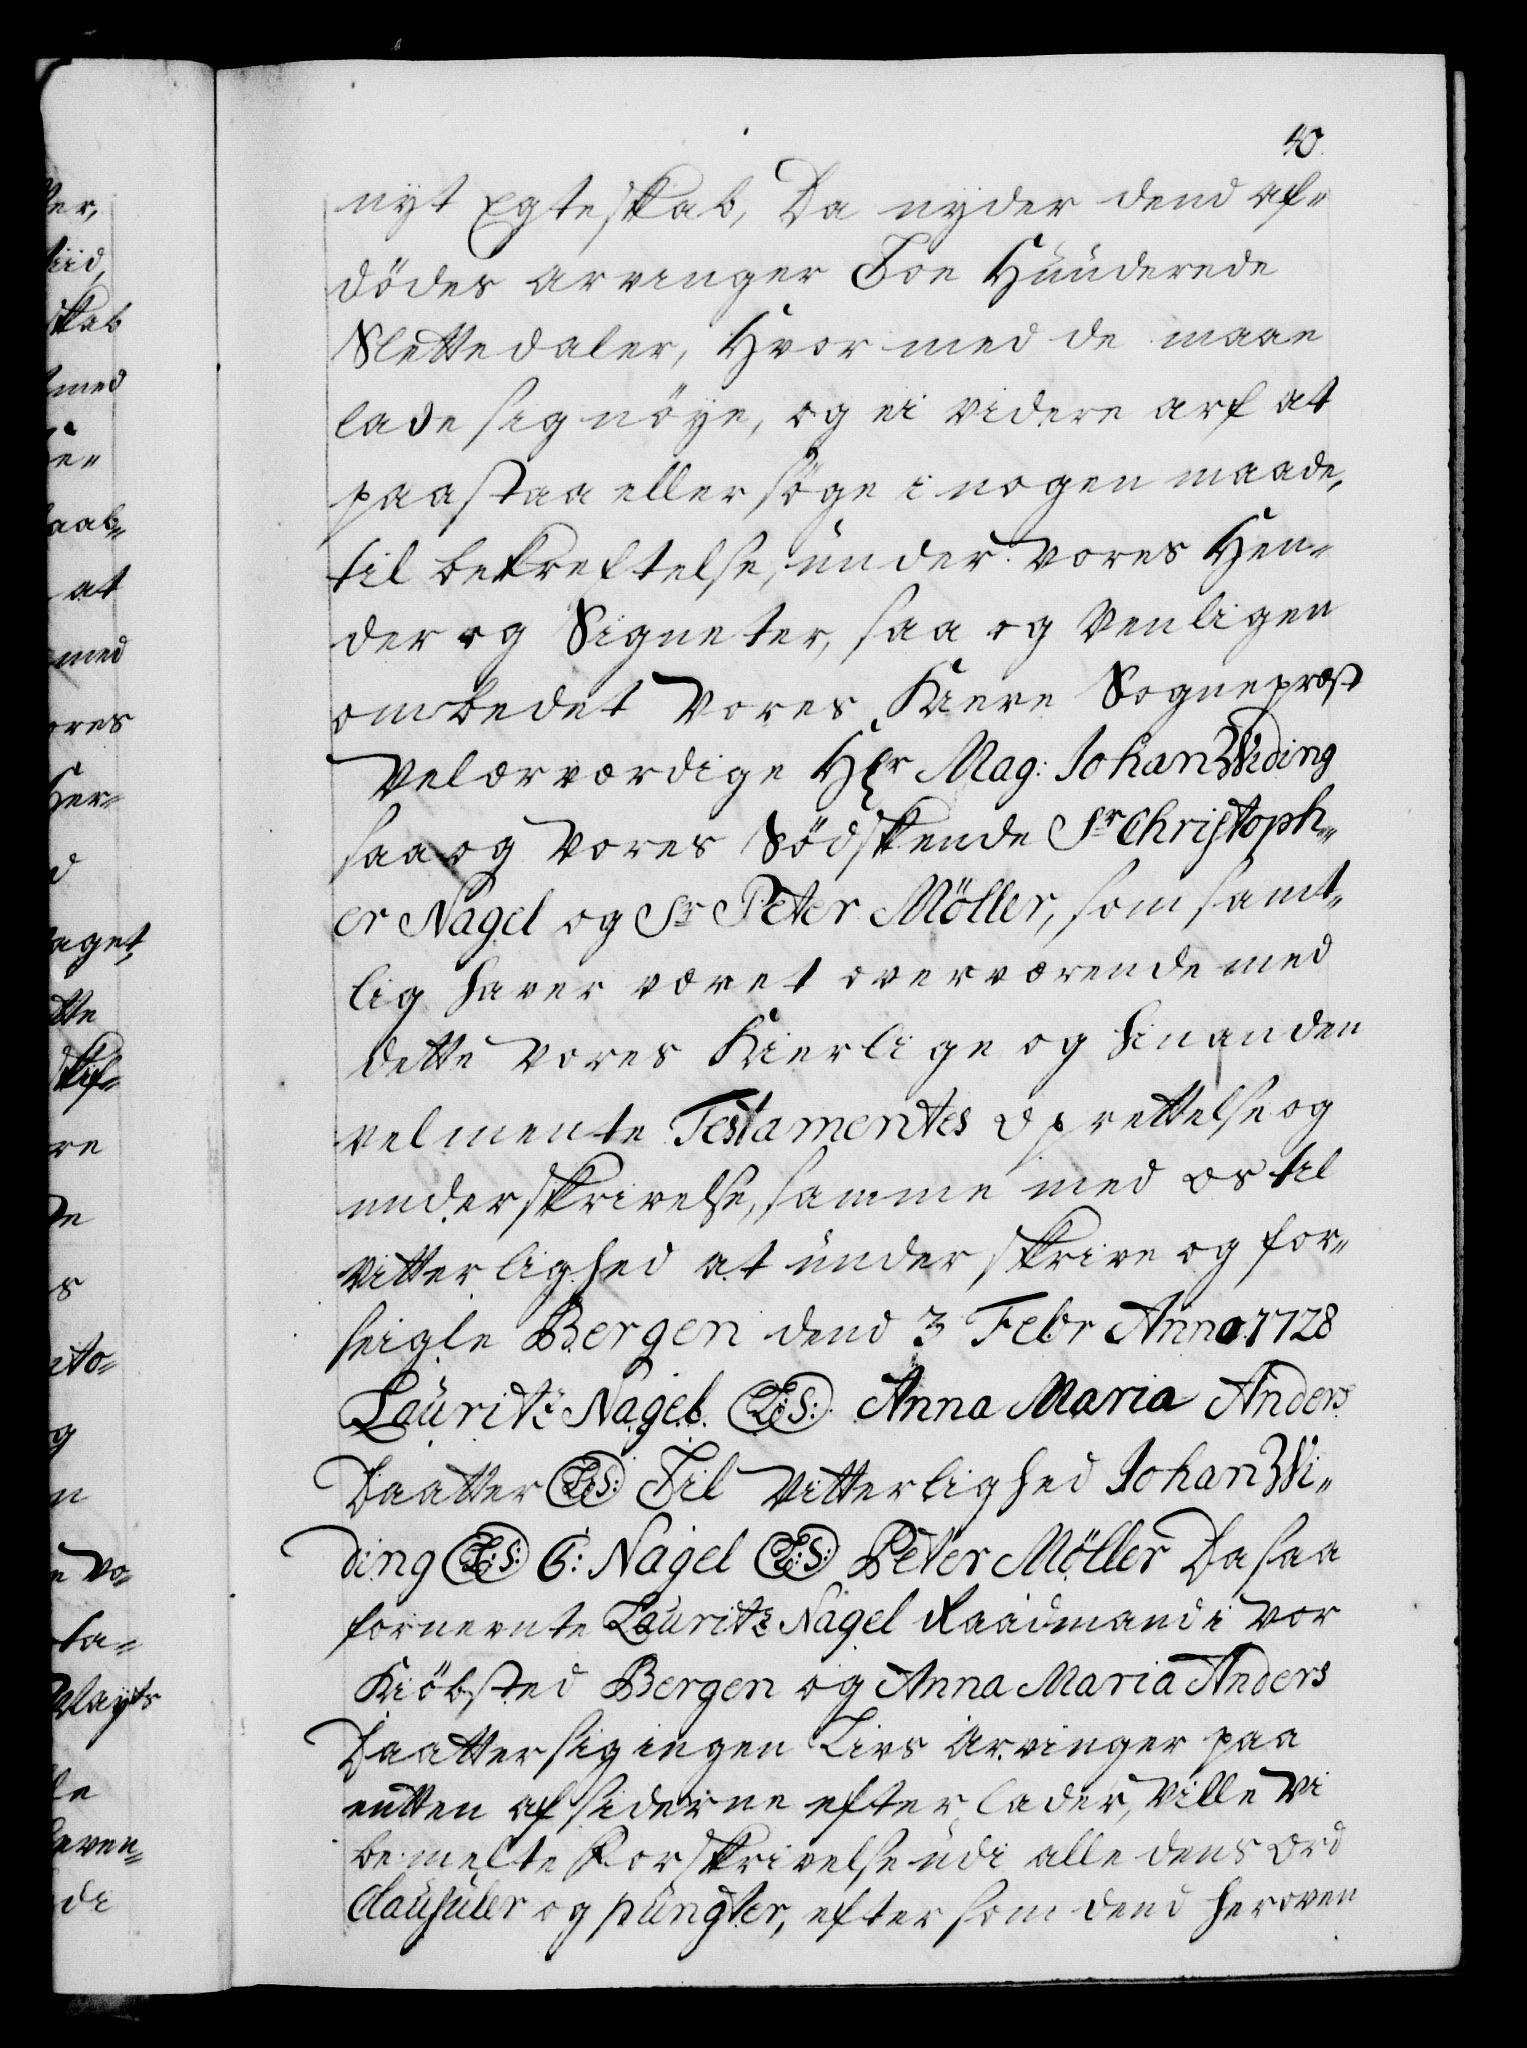 40.
nyt Egteskab, Da nyder dend af-
dödes arvinger Toe Hünderede
Slettedaler, Hvor med de maae
lade sig nöye, og ei videre arf at
paastaa eller söge i nogen maade,
til bekreftelse, ünder vores Hen-
der og Signeter, saa og venligen
ombedet vores Kiere Sognepræst
Velærværdige Hr Mag: Johan Widing
saa og vores Södskende Sr Christoph-
er Nagel og Sr Peter Möller, som samt-
lig haver været overværende med
dette vores Kierlige og hinanden
velmente Testamentes oprettelse og
underskrivelse, samme med os til
vitterlighed at ünderskrive og for-
seigle Bergen dend 3 Febr Anno 1728
Lauritz Nagel (L:S:) Anna Maria Anders
Daatter (L:S:) Til vitterlighed Johan Wi-
ding (L:S:) C: Nagel (L:S:) Peter Möller Da saa
fornevnte Lauritz Nagel Raadmand i vor
Kiöbsted Bergen og Anna Maria Anders
Daatter sig ingen Livs arvinger paa
nutten af siderne efterlader, ville vi
bemelte Forskrivelse üdi alle dens ord
Clausuler og püngter, eftersom dend heroven